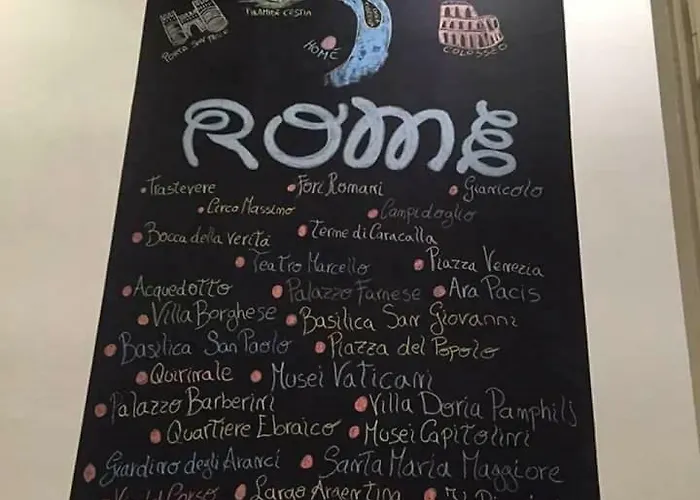 PIRAMIDE CESTIA
PORTA SAN PAOLO
HOME
COLOSSEO
ROME
Trastevere Fori Romani Gianicolo
Circo Massimo Campidoglio
Bocca della verità Terme di Caracalla
Teatro Marcello Piazza Venezia
Acquedotto Palazzo Farnese Ara Pacis
Villa Borghese Basilica San Giovanni
Basilica San Paolo Piazza del Popolo
Quirinale Musei Vaticani
Palazzo Barberini Villa Doria Pamphilj
Quartiere Ebraico Musei Capitolini
Giardino degli Aranci Santa Maria Maggiore
Via del Corso Largo Argentina